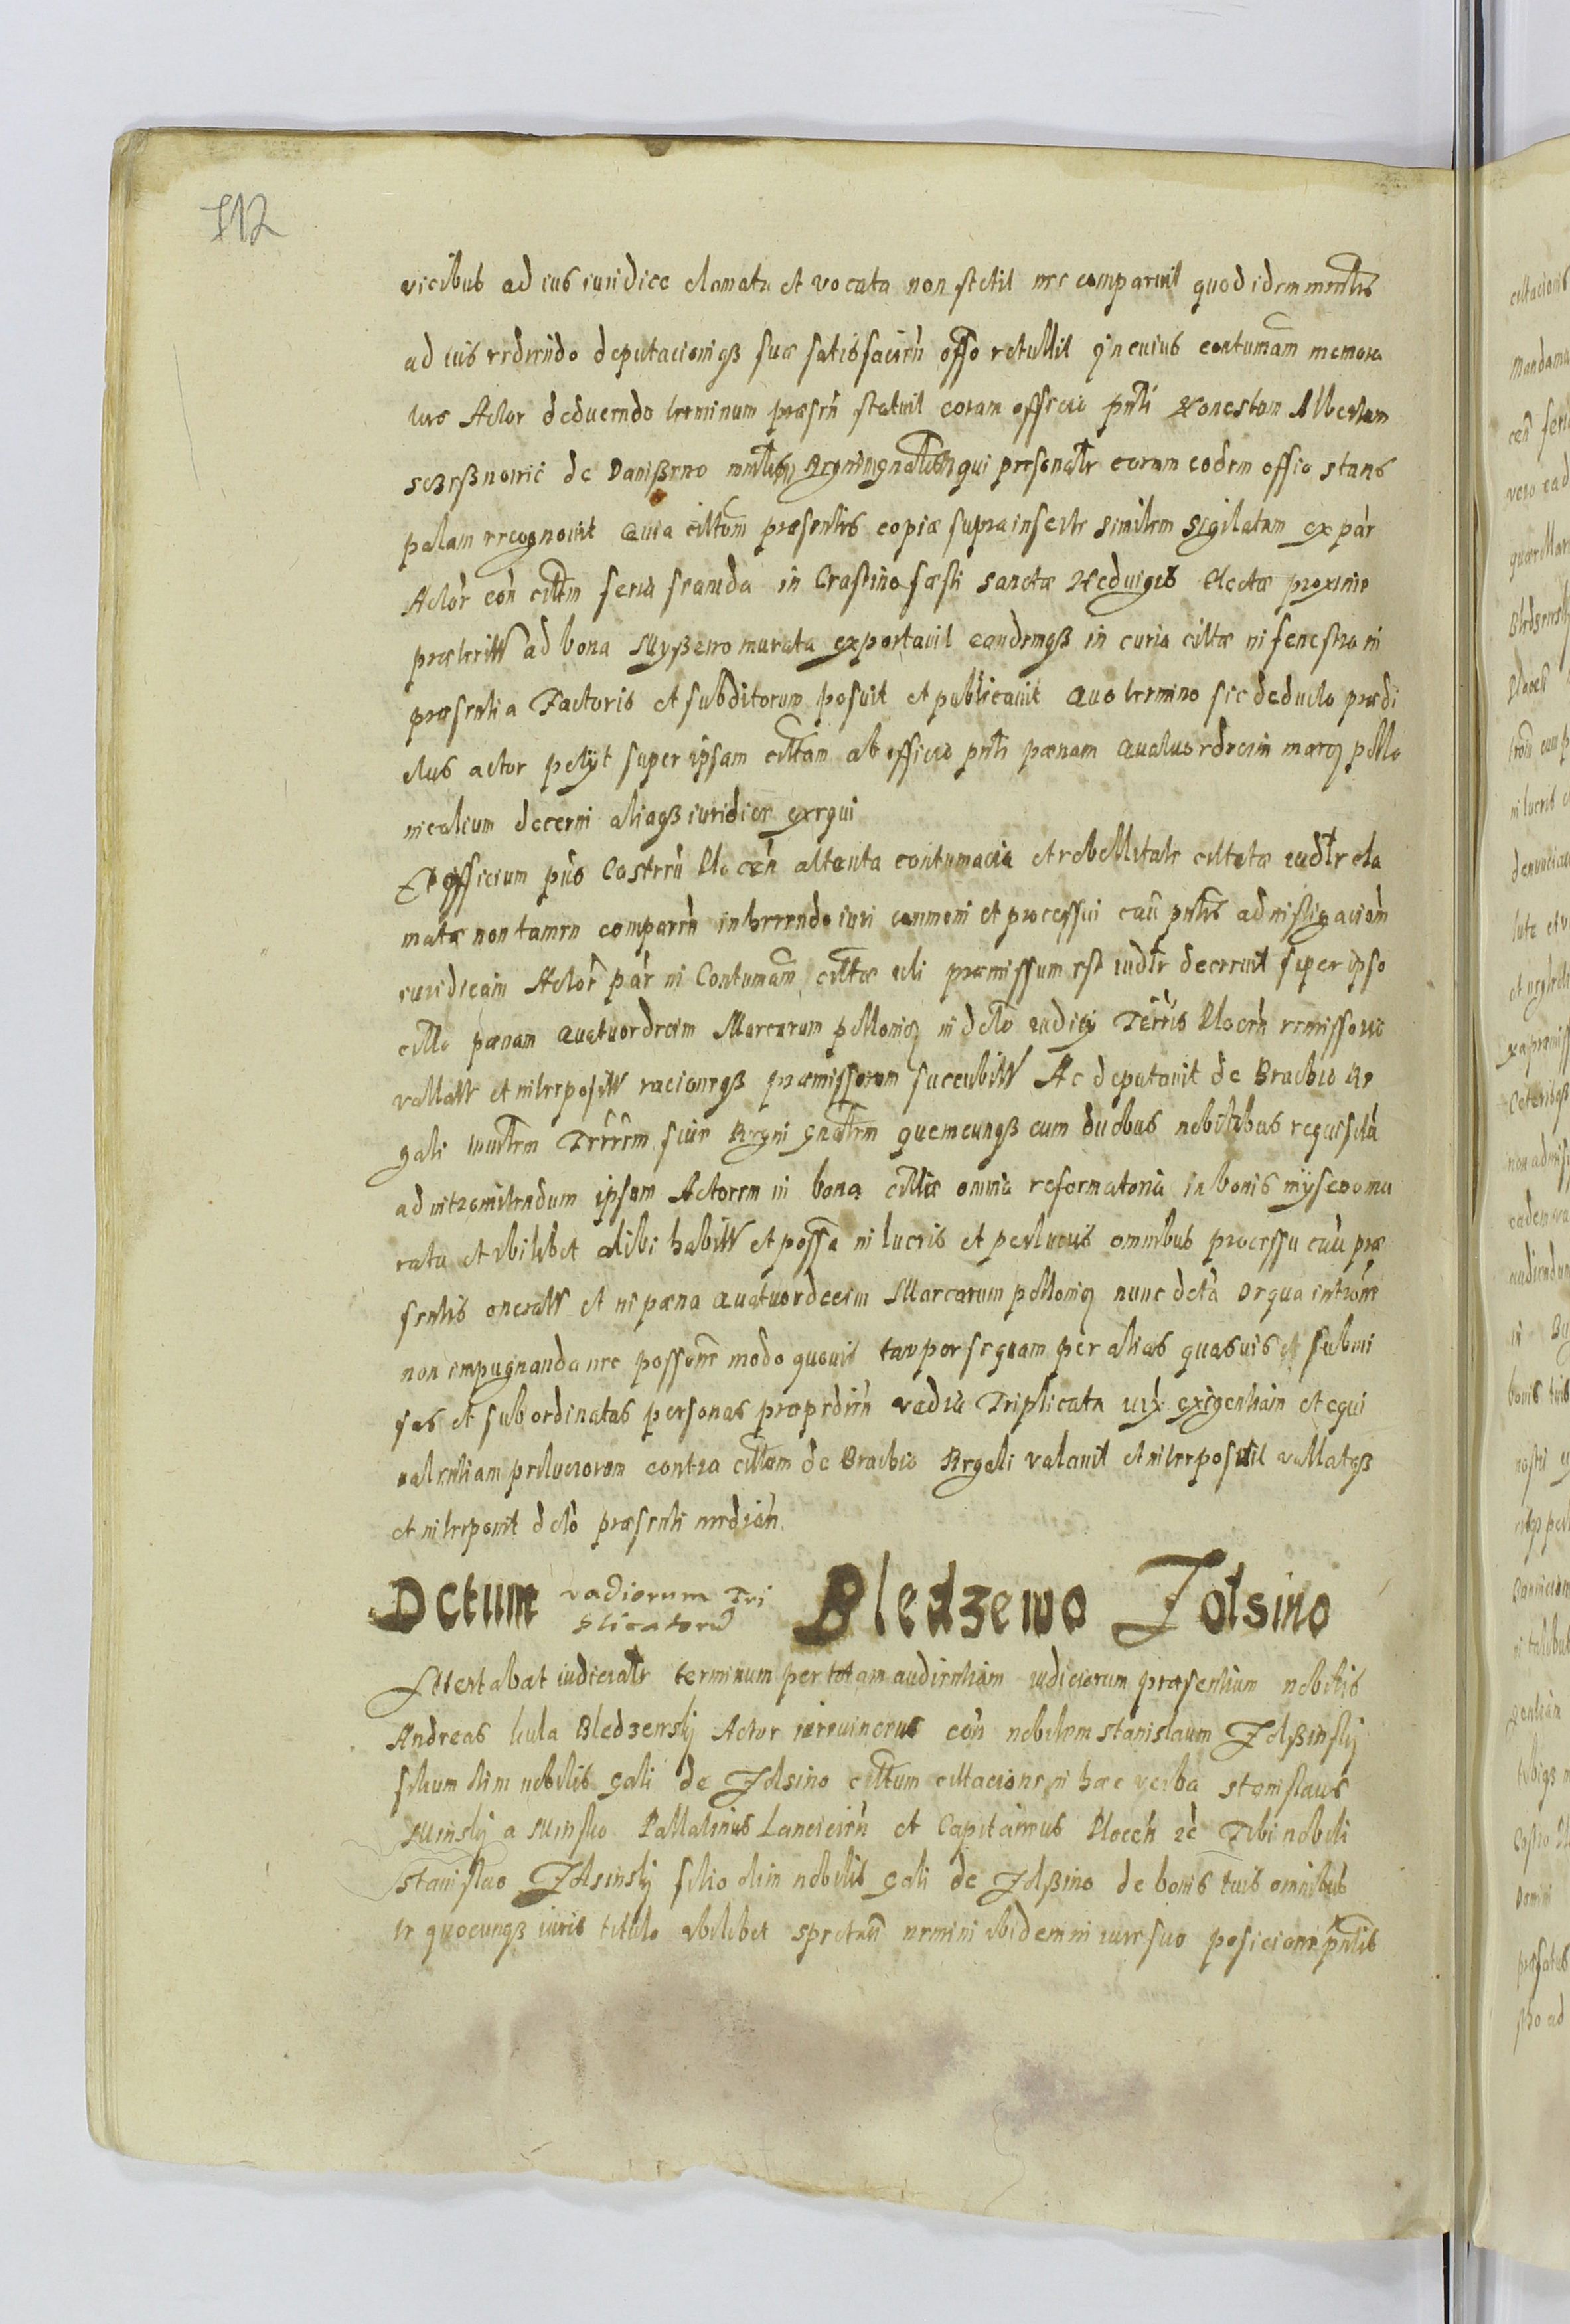 112
vicibus ad ius iuridice clamata et vocata non stetit nec comparuit quod idem mnlis
ad eius reddendo deputacioniqß suæ satisfacien offo retullit In cuius contumam memora
tus Actor deducendo terminum præsen statuit coram officio pnti honestum Albertum
de Danißewo Regni gnalem qui personalr coram eodem offio stans
palam recognouit Quia cittom præsentis copiæ suprainserte similem sigilatam ex par
Actor con cittm feria secunda in Crastino fæsti Sanctæ Heduigis Electæ proxime
præteritt ad bona Myßewo murata exportauit eandemqß in curia cittæ in fenestra in
præsentia Factoris et subditorum posuit et publicauit Quo termino sic deducto prædi
ctus actor petijt super ipsam cittam ab officio pnti pænam Quatuordecim marcq pollo
nicalium decerni aliaqß iuridice exequi
Et officium pns Castren Plocen attenta contumacia et rebellitate cittatæ iudlr cla
matæ non tamen comparen inherendo iuri communi et processui cau pntis ad instigacion
iuridicam Actor par in Contumam cittæ uti præmissum est iudlr decreuit super ipso
citto pænam quatuordecim Marcarum pollonicq in decto iudicij Terris Plocen remissorio
vallatt et interpositt racioneqß præmissorum succubitt Ac deputauit de Brachio Re
gali mnlrem Terrem siue Regni gnalem quemcunqß cum duobus nobilibus requisita
ad intromittendum ipsum Actorem in bona cittæ omnia reformatoria in bonis myseuomu
rata et vbilibet alibi habitt et possa in lucris et perlucris omnibus processu cau præ
sentis oneratt et in pæna quatuordecim Marcarum pollonicq nunc decta De qua introme
non impugnanda nec possone modo quouis tam per se quam per alias quasuis et submi
sas et subordinatas personas præpedien vadia Triplicata iux exigentiam et equi
ualentiam perlucrorum contra cittam de Brachio Regali valauit et interposuit vallatqß
et interponit decto præsenti median
Dctum vadiorum Tri
plicatorum Bledzewo Jotsino
Attentabat iudicialr terminum per totam audientiam iudiciorum præsentium nobilis
Andreas kula Bledzewskj Actor con nobilem Stanislaum Jolßinskj
filium olim nobilis Gali de Jolsino cittum cittacione in hæc verba Stanislaus
Minskj a Minsko Pallatinus Lancicien et Capitaneus Plocen ec Tibi nobili
Stanislao Jolsinskj filio olim nobilis Gali de Jolßino de bonis tuis omnibus
ir quocunqß iuris titulo vbilibet spectan nemini ibidem in iure suo posicione pntis